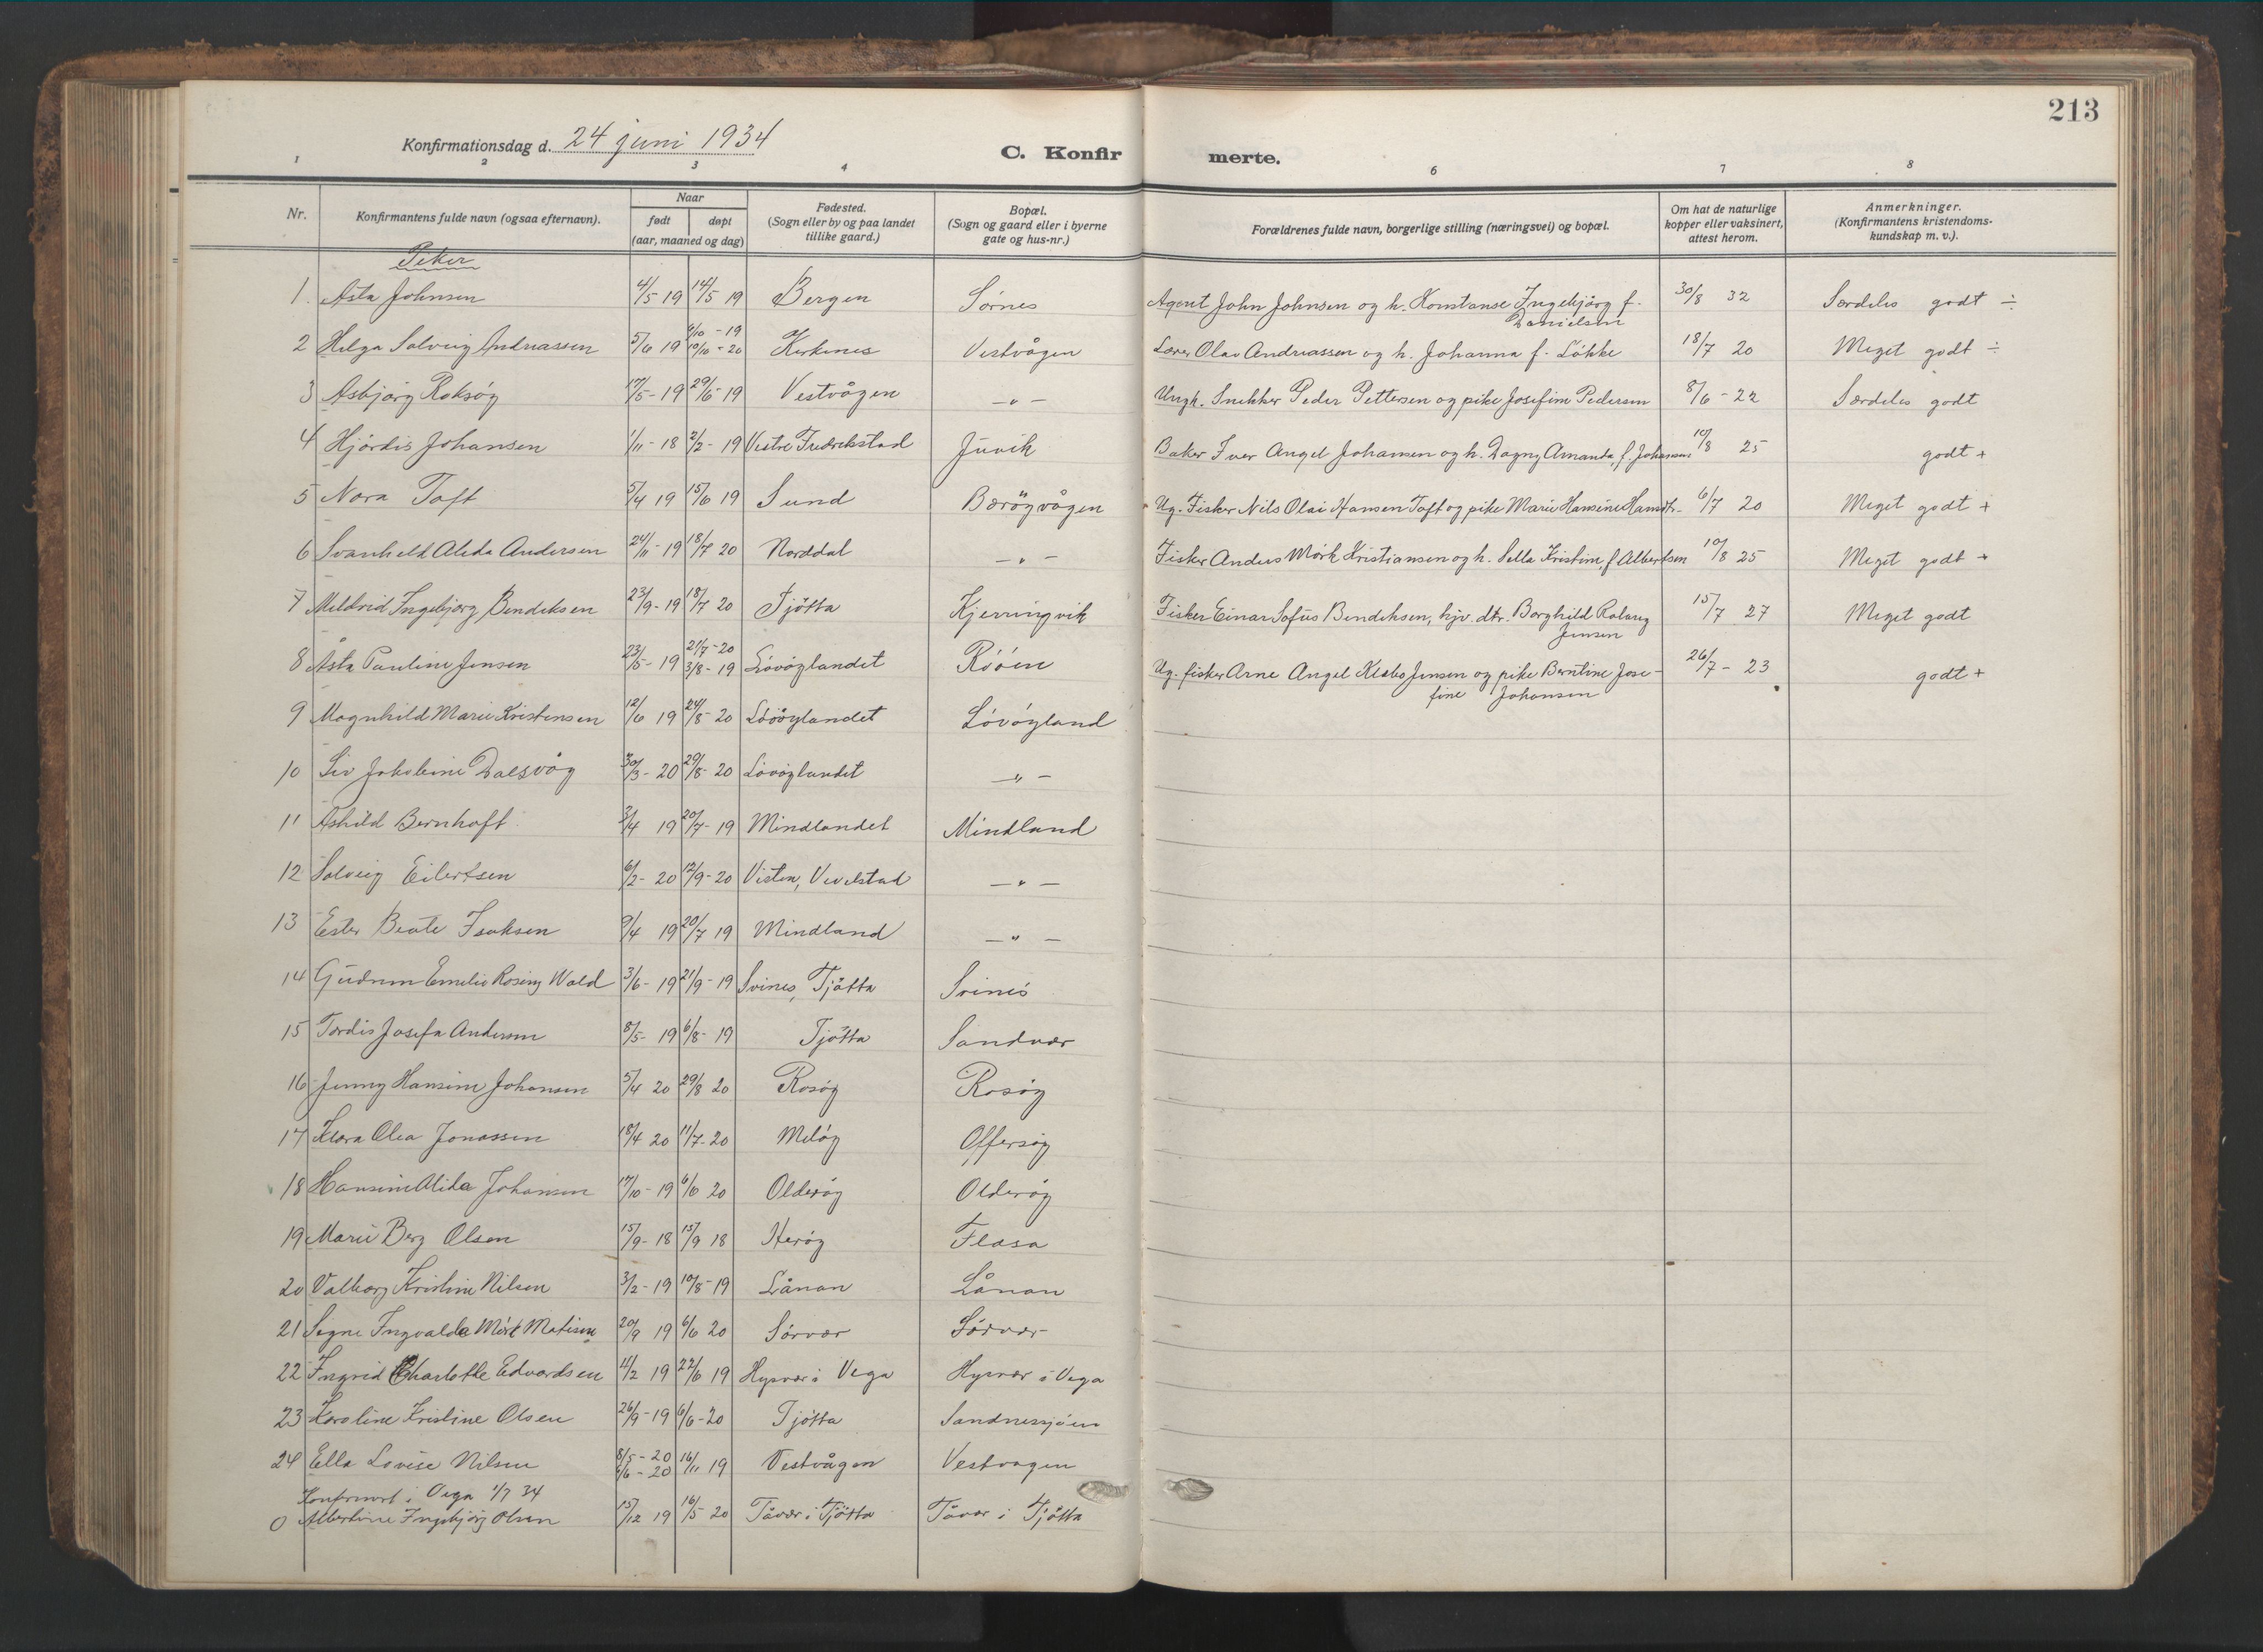 213
Konfirmationsdag d. 24 juni 1934
C. Konfirmerte.
1 2 3 4 6 7 8
Nr.
Konfirmantens fulde navn (ogsaa efternavn).
Naar
født døpt
(aar, maaned og dag)
Fødested.
(Sogn eller by og paa landet
tillike gaard.)
Bopæl.
(Sogn og gaard eller i byerne
gate og hus-nr.)
Forældrenes fulde navn, borgerlige stilling (næringsvei) og bopæl.
Om hat de naturlige
kopper eller vaksinert,
attest herom.
Anmerkninger.
(Konfirmantens kristendoms-
kundskap m. v.).
Piker
1. Asta Johnsen 4/5 19 14/5 19 Bergen Sörnes Agent John Johnsen og h. Konstanse Ingebjörg f. Danielsen 30/8 32 Særdeles godt ÷
2 Helga Solveig Andreassen 5/6 19 10/10 - 20 Kirkenes Vestvågen Lærer Olav Andreassen og h. Johanna f. Lökke 18/7 20 Meget godt ÷
3 Asbjörg Roksöy 17/5 - 19 29/6 - 19 Vestvågen — " — Ungk. Snekker Peder Pettersen og pike Josefine Pedersen 8/6 - 22 Særdeles godt
4 Hjördis Johansen 1/11 - 18 2/2 - 19 Vestre Fredrikstad Juvik Baker Iver Angel Johansen og h. Dagny Amanda, f. Johansen 10/8 25 godt +
5 Nora Toft 5/4 19 15/6 19 Sund Baröyvågen Ug. Fisker Nils Olai Hansen Toft og pike Marie Hansine Hansdtr. 6/7 20 Meget godt +
6 Svanhild Alida Andersen 24/11 - 19 18/7 20 Norddal — " — Fisker Anders Mörk Kristiansen og h. Sella Kristine, f Albertsen 10/8 25 Meget godt +
7 Mildrid Ingebjørg Bendiksen 23/9 - 19 18/7 20 Tjötta Kjerringvik Fisker Einar Sofus Bendiksen, hjv. dtr. Borghild Jensen 15/7 27 Meget godt
8 Åsta Pauline Jensen 23/5 - 19 21/7 - 20 3/8 - 19 Lövöylandet Röóen Ug. fisker Arne Angel Jensen og pike Berntine Josefine Johansen 26/7 - 23 godt +
9 Magnhild Marie Kristensen 12/6 19 24/8 - 20 Lövöylandet Lövöyland
10 Liv Jakobine Dalsvåg 30/3 - 20 29/8 - 20 Lövöylandet — " —
11 Åshild Bernhoft 3/4 19 20/7 - 19 Mindlandet Mindland
12 Solveig Eilertsen 6/2 - 20 12/9 - 20 Visten, Vevelstad — " —
13 Ester Beate Isaksen 9/4 19 20/7 19 Mindland — " —
14 Gudrun Emelie Rosing Wold 3/6 - 19 21/9 - 19 Svines, Tjötta Svines
15 Tordis Josefa Andersen 8/5 - 19 6/8 - 19 Tjötta Sandvær
16 Jenny Hansine Johansen 5/4 20 29/8 20 Rosöy Rosöy
17 Klara Olea Jonassen 18/4 20 11/7 - 20 Melöy Offersöy
18 Hansine Alida Johansen 17/10 - 19 6/6 20 Olderöy Olderöy
19 Marie Berg Olsen 15/9 - 18 15/9 18 Heröy Flosa
20 Valborg Kristine Nilsen 3/2 - 19 10/8 - 19 Lånan Lånan
21 Signe Ingvalda Mörk Matisen 20/9 19 6/6 20 Sörvær Sörvær
22 Ingrid Charlotte Edvardsen 4/2 19 22/6 19 Hysvær i Vega Hysvær i Vega
23 Karoline Kristine Olsen 26/9 - 19 6/6 - 20 Tjötta Sandnessjöen
24 Ella Lovise Nilsen 8/5 - 20 6/6 - 20 16/11 19 Vestvågen Vestvagen
Konfirmert i Vega 1/7 34
0 Albertine Ingebjörg Olsen 15/12 19 16/5 20 Tåvær i Tjötta Tåvær i Tjötta